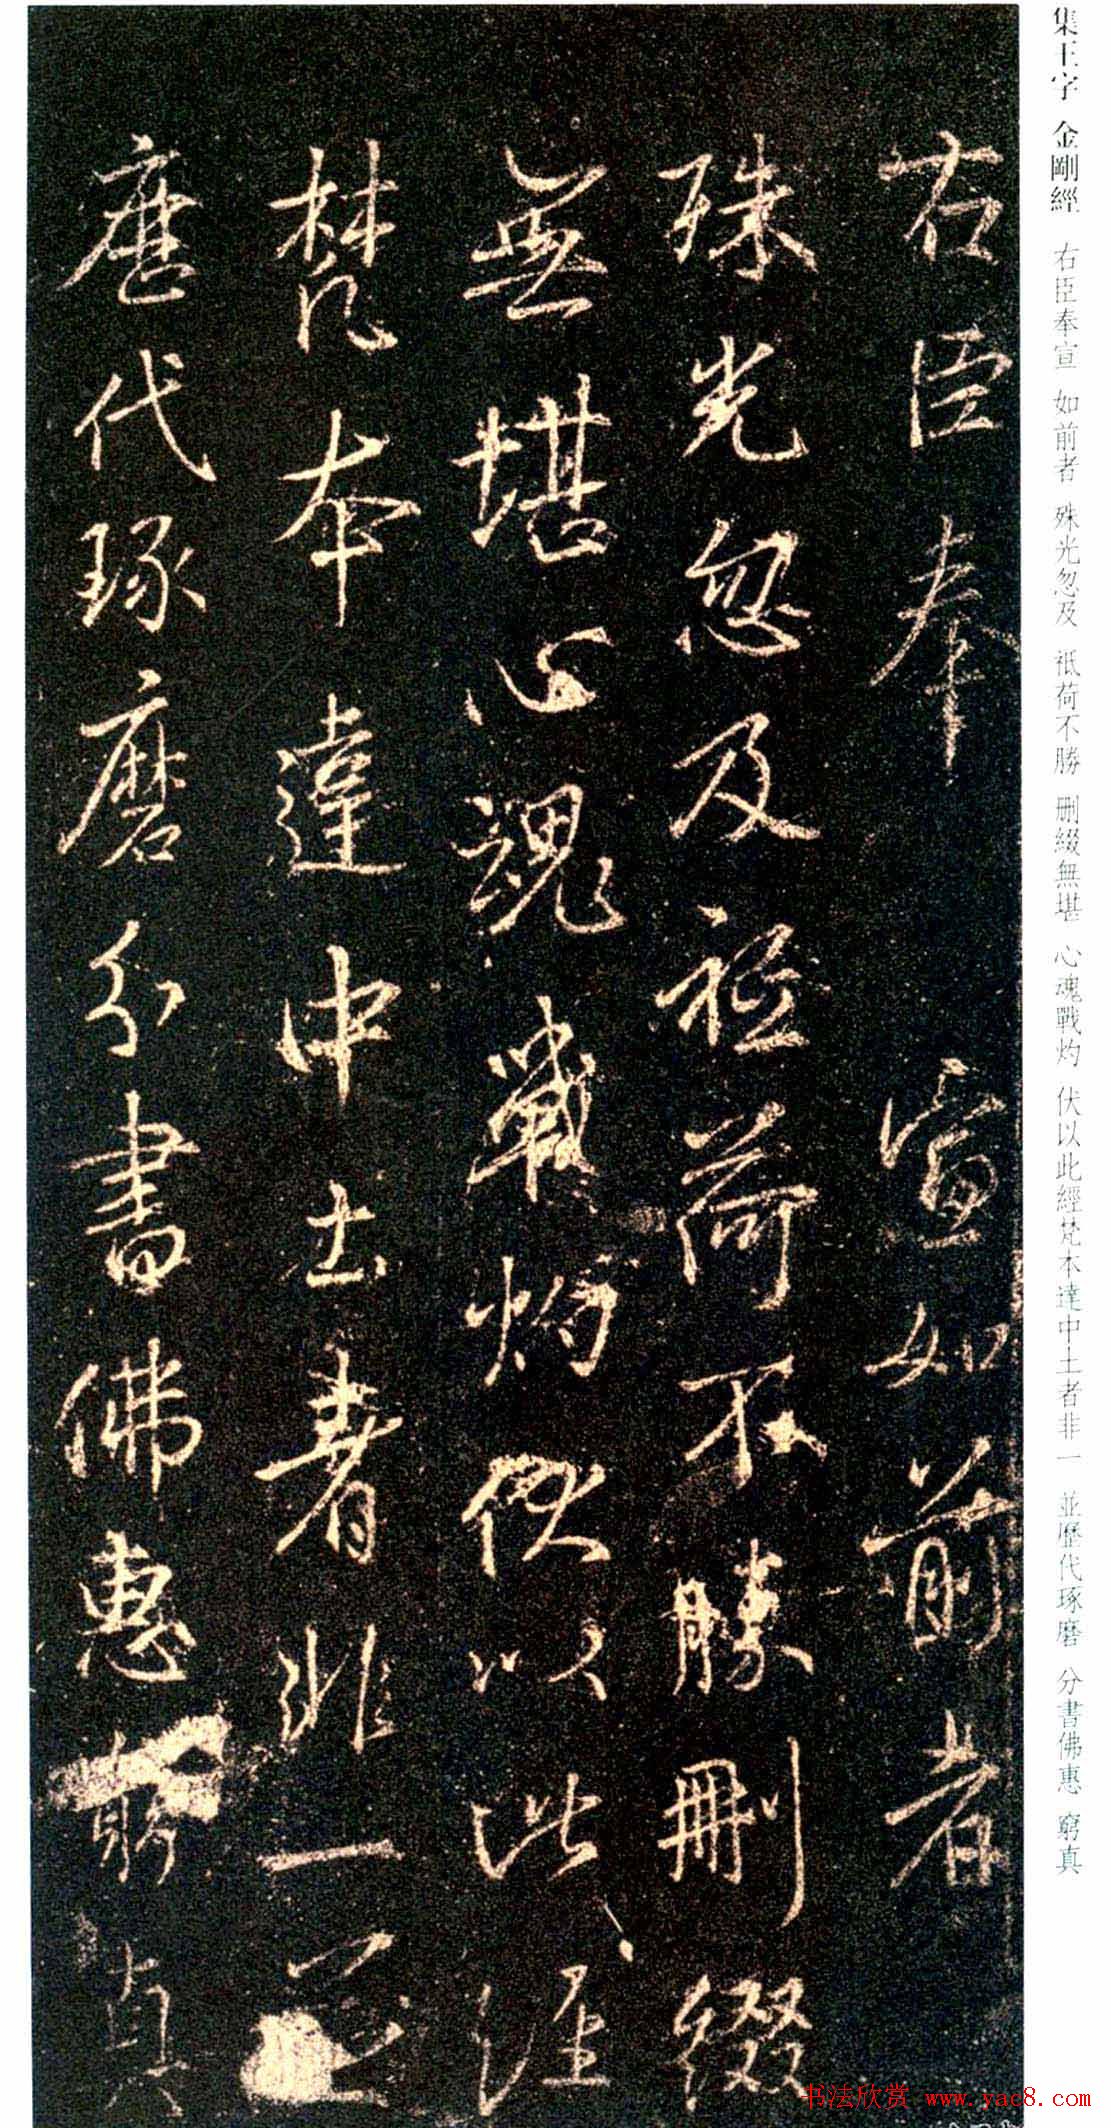 集王字 金剛經 右臣奉宣 如前者 殊光忽及 祗荷不勝 删綴無堪 心魂戰灼 伏以此經梵本達中土者非一 並歷代琢磨 分書佛惠 窮真
右臣奉 宣如前者
殊光忽及祗荷不勝刪綴
無堪心魂戰灼伏以此經
梵本達中土者非一並
歷代琢磨分書佛惠窮真
书法欣赏 www.yac8.com